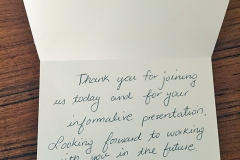 Thank you for joining
us today and for your
informative presentation.
Looking forward to working
with you in the future.